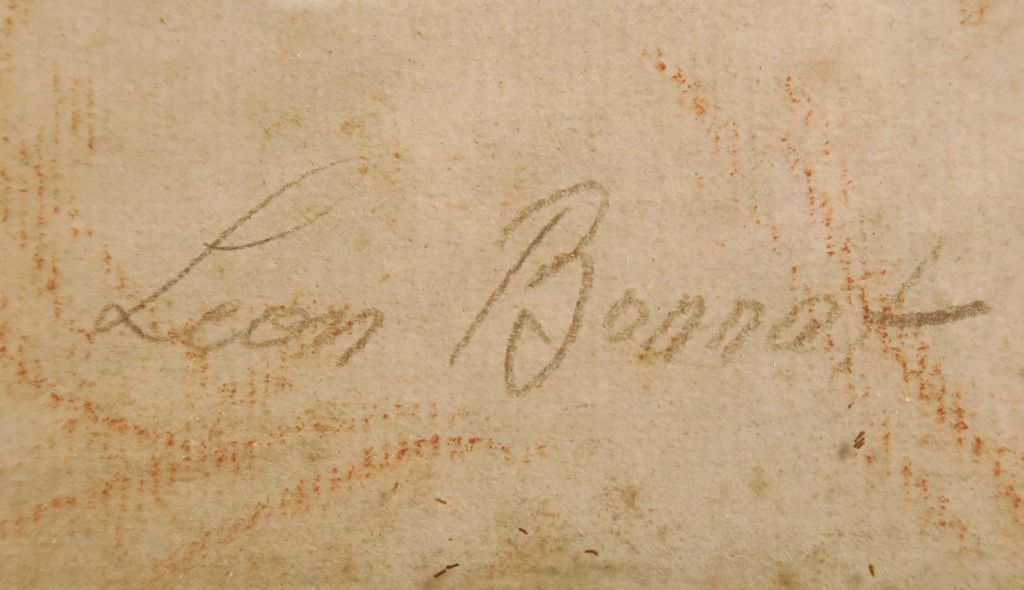 Leon Bonnat